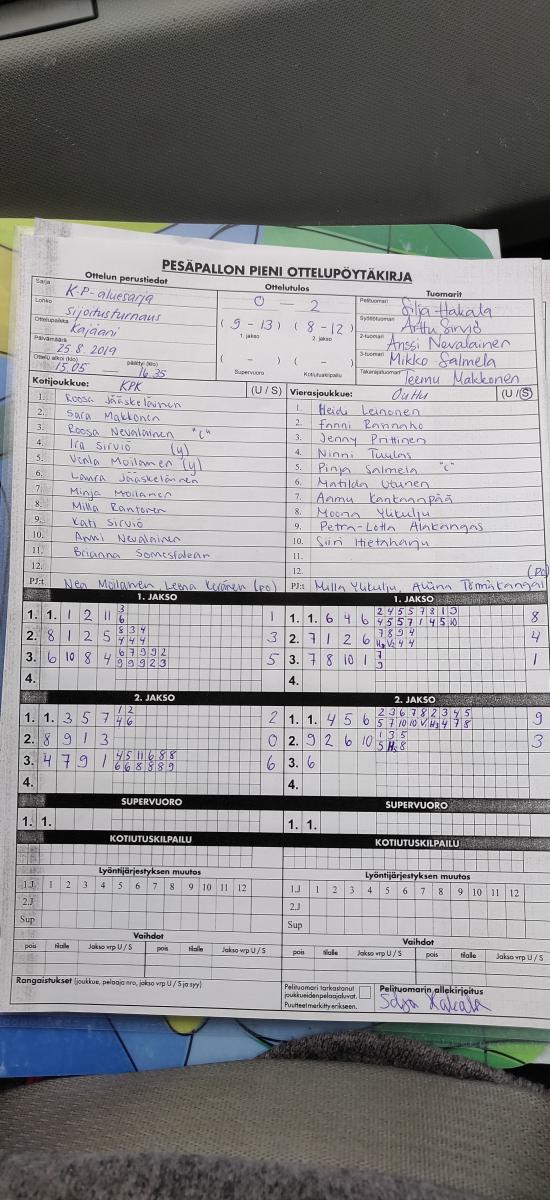 PESÄPALLON PIENI OTTELUPÖYTÄKIRJA
Ottelun perustiedot
Ottelutulos
Tuomarit
Sarja K-P-aluesarja
Lohko Sijoitusturnaus
Ottelupaikka Kajaani
Päivämäärä 25.8.2019
Ottelu alkoi (klo) 15.05 päättyi (klo) 16.35
0 — 2
( 9 - 13 ) ( 8 - 12 )
1. jakso 2. jakso
( - ) ( )
Supervuoro Kotiutuskilpailu
Pelituomari Silja Hakala
Syöttötuomari Arttu Sirviö
2-tuomari Anssi Nevalainen
3-tuomari Mikko Salmela
Takarajatuomari Teemu Makkonen
Kotijoukkue: KPK (U / S)
1. Roosa Jääskeläinen
2. Sara Makkonen
3. Roosa Nevalainen "C"
4. Ira Sirviö (y)
5. Venla Moilanen (y)
6. Laura Jääskeläinen
7. Minja Moilanen
8. Milla Rantonen
9. Kati Sirviö
10. Anni Nevalainen
11. Brianna
12.
PJ:t Nea Moilanen Leena Keränen (po)
Vierasjoukkue: Outlu (U / S)
1. Heidi Leinonen
2. Fanni Rannanho
3. Jenny Pirttinen
4. Ninni Tuulas
5. Pinja Salmela "C"
6. Matilda Utunen
7. Aamu Kankaanpää
8. Moona Ylikulju
9. Petra-Lotta Alakangas
10. Siiri Hietaharju
11.
12. (po)
PJ:t Milla Ylikulju, Törmäkangas
1. JAKSO
1. 1. 1 2 11 3 1
6
2. 8 1 2 5 8 3 4 3
4 4 4
3. 6 10 8 4 6 7 9 9 2 5
9 9 9 2 3
4.
1. JAKSO
1. 1. 6 4 6 2 4 5 5 7 8 1 3 8
4 5 5 7 1 4 5 10
2. 7 1 2 6 7 8 9 4 4
4 4
3. 7 8 10 1 7 1
9
4.
2. JAKSO
1. 1. 3 5 7 1 2 2
4 6
2. 8 9 1 3 0
3. 4 7 9 1 4 5 11 6 8 8 6
6 6 8 8 8 9
4.
2. JAKSO
1. 1. 4 5 6 2 3 6 7 8 2 3 4 5 9
5 7 10 10 4 7 8
2. 9 2 6 10 1 3 5 3
5 8
3. 6
4.
SUPERVUORO
1. 1.
SUPERVUORO
1. 1.
KOTIUTUSKILPAILU
KOTIUTUSKILPAILU
Lyöntijärjestyksen muutos
1.J 1 2 3 4 5 6 7 8 9 10 11 12
2.J
Sup
Lyöntijärjestyksen muutos
1.J 1 2 3 4 5 6 7 8 9 10 11 12
2.J
Sup
Vaihdot
pois tilalle Jakso vrp U / S pois tilalle Jakso vrp U / S
Vaihdot
pois tilalle Jakso vrp U / S pois tilalle Jakso vrp U / S
Rangaistukset (joukkue, pelaaja nro, jakso vrp U / S ja syy)
Pelituomari tarkastanut
joukkueiden pelaajaluvat.
Puutteet merkitty erikseen.
Pelituomarin allekirjoitus
Silja Hakala